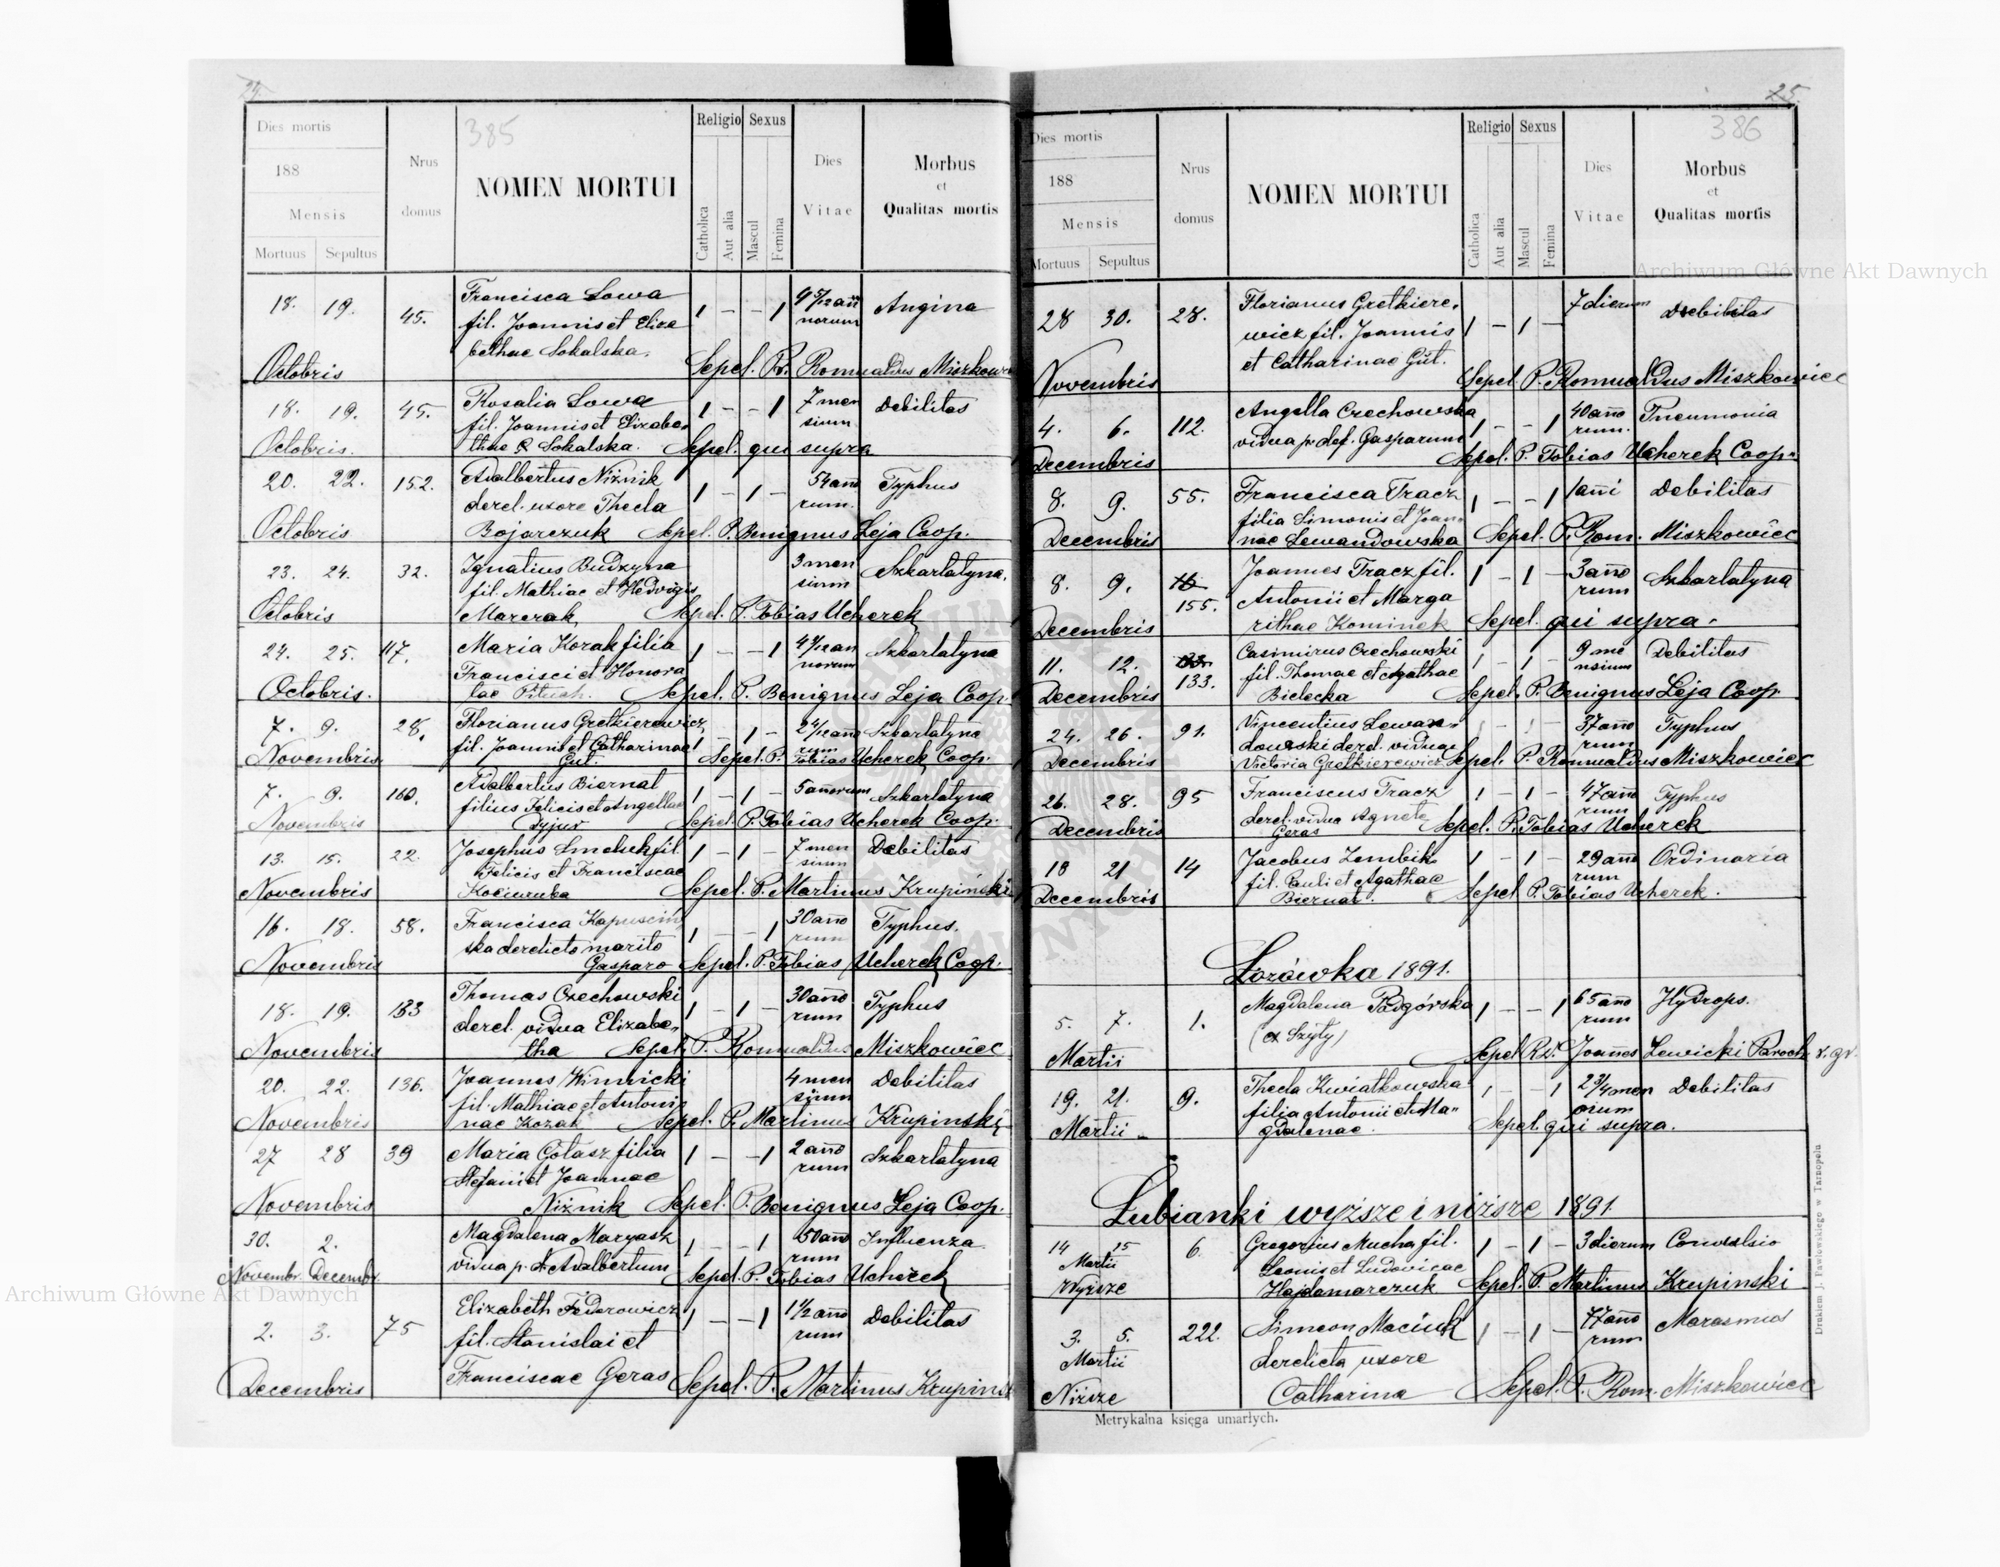 24.
Dies mortis
188
Mensis
Mortuus Sepultus
Nrus
domus
385
NOMEN MORTUI
Religio
Catholica
Aut alia
Sexus
Mascul
Femina
Dies
Vitae
Morbus
et
Qualitas mortis
18. 19. 45. Francisca Sowa 1 – – 1 4 5/12 an Angina
fil. Joannis et Eliza norum
bethae Sokalska.
Octobris Sepel. P. Romualdus Miszkowiec
18. 19. 45. Rosalia Sowa 1 – – 1 7 men Debilitas
fil. Joannis et Elizabe sium
Octobris. thae Sokalska. Sepel. qui supra
20. 22. 152. Adalbertus Niżnik 1 – 1 – 54 ano Typhus
derel. uxore Thecla rum.
Octobris Bojarczuk Sepel. P. Benignus Leja Coop.
23. 24. 32. Ignatius Budzyna 3 men Szkarlatyna.
fil. Mathiae et Hedvigis sium
Octobris Marczak Sepel. P. Tobias Ucherek
24. 25. 117. Maria Kozak filia 1 – – 1 an Szkarlatyna
Francisci et Honora norum
Octobris. tae Sepel. P. Benignus Leja Coop.
7. 9. 28. Florianus Gretkierewicz 1 – 1 – 2 4/12 ano Szkarlatyna
fil. Joannis et Catharinae rum
Novembris Gut. Sepel. P. Tobias Ucherek Coop.
7. 9. 160. Adalbertus Biernat 1 – 1 – 5 annorum Szkarlatyna
filius Felicis et Angellae
Novembris Dyjur Sepel. P. Tobias Ucherek Coop.
13. 15. 22. Josephus fil. 1 – 1 – 7 men Debilitas
Felicis et Franciscae sium
Novembris Kociuruba Sepel. P. Martinus Krupiński
16. 18. 58. Francisca Kapuściń 1 – – 1 30 ano Typhus.
ska derelicto marito rum
Novembris Gasparo Sepel. P. Tobias Ucherek Coop.
18. 19. 133 Thomas Czechowski 1 – 1 – 30 ano Typhus
derel. vidua Elizabe rum
Novembris tha Sepel. P. Romualdus Miszkowiec
20. 22. 136. Joannes Winnicki 1 – 1 – 4 men Debilitas
fil. Mathiae et Antoni sium
Novembris nae Kozak Sepel. P. Martinus Krupinski
27 28 39 Maria Gołasz filia 1 – – 1 2 ano Szkarlatyna
Stefani et Joannae rum
Novembris Niżnik Sepel. P. Benignus Leja Coop.
30. 2. Magdalena Maryasz 1 – – 1 50 ano Influenza
vidua p. Adalbertum rum
Novembr. Decembr. Sepel. P. Tobias Ucherek
2. 3. 75 Elizabeth Federowicz 1 – – 1 1 1/2 ano Debilitas
fil. Stanislai et rum
Decembris Franciscae Geras Sepel. P. Martinus Krupinski
25.
Dies mortis
188
Mensis
Mortuus Sepultus
Nrus
domus
NOMEN MORTUI
Religio
Catholica
Aut alia
Sexus
Mascul
Femina
Dies
Vitae
386
Morbus
et
Qualitas mortis
28 30. 28. Florianus Gretkiere- 1 – 1 – 7 dierum Debilitas
wicz fil. Joannis
et Catharinae Gut.
Novembris Sepel. P. Romualdus Miszkowiec
4. 6. 112. Angella Czechowska 1 – – 1 40 ano Pneumonia
vidua p. def. Gasparum rum.
Decembris Sepel. P. Tobias Ucherek Coop.
8. 9. 55. Francisca Tracz 1 – – 1 1 anni Debilitas
filia Simonis et Joan-
Decembris nae Lewandowska Sepel. P. Rom. Miszkowiec
8. 9. 155. Joannes Tracz fil. 1 – 1 – 3 ano Szkarlatyna
Antonii et Marga rum
Decembris rithae Kominek Sepel. qui supra.
11. 12. 133. Casimirus Czechowski 1 – 1 – 9 me Debilitas
fil. Thomae et Agathae nsium
Decembris Bielecka Sepel. P. Benignus Leja Coop.
24. 26. 91. Vincentius Lewan- 1 – 1 – 37 ano Typhus
dowski derel. vidua rum
Decembris Victoria Gretkierewicz Sepel. P. Romualdus Miszkowiec
26. 28. 95 Franciscus Tracz 1 – 1 – 47 ano Typhus
derel. vidua Agnete rum
Decembris Geras Sepel. P. Tobias Ucherek
18 21 14 Jacobus Zembik 1 – 1 – 29 ano Ordinaria
fil. Pauli et Agathae rum
Decembris Biernat. Sepel. P. Tobias Ucherek.
Łozówka 1891.
5. 7. 1. Magdalena Podgórska 1 – – 1 65 ano Hydrops.
(ex Szyty) rum
Martii Sepel. Rd. Joannes Lewicki Paroch. r. gr.
19. 21. 9. Thecla Kwiatkowska 1 – – 1 2 3/4 men Debilitas
filia Antonii et Ma- sium
Martii gdalenae. Sepel. qui supra.
Lubianki wyższe i niższe 1891.
14 15 6. Gregorius Mucha fil. 1 – 1 – 3 dierum Convulsio
Martii Leonis et Ludovicae
Wyższe Hajdamarczuk Sepel. P. Martinus Krupinski
3. 5. 222. Simeon Maciuk 1 – 1 – 77 ano Marasmus
Martii derelicta uxore rum
Niższe Catharina Sepel. P. Rom. Miszkowiec
Metrykalna księga umarłych.
Drukiem J. Pawłowskiego w Tarnopolu
Archiwum Główne Akt Dawnych
Archiwum Główne Akt Dawnych